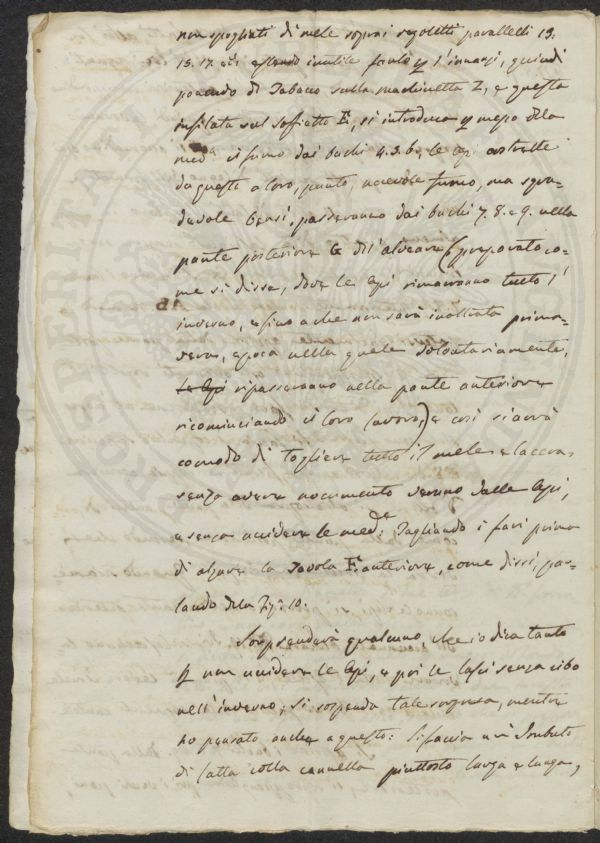 non spogliati di mele sopra i regoletti paralleli 13.
15. 17. essendo inutile farlo p l'innanzi, quindi
ponendo di Tabaco sulla machinetta Z, e questa
infilata sul soffietto E, si introduca p mezo della
med.a il fumo dai buchi 4. 5. 6, le Api costrette
da questo a loro, punto, nocevole fumo, ma sgra-
devole bensì, passeranno dai buchi 7. 8. e 9. nella
parte posteriore G dell'alveare (preparato co-
me si disse, dove le Api rimarranno tutto l'
inverno, e fino a che non sarà inoltrata prima-
vera, epoca nella quale volontariamente,
le Api ripasseranno nella parte anteriore
ricominciando il loro lavoro,) e così si avrà
comodo di togliere tutto il mele e la cera,
senza avere nocumento veruno dalle Api,
e senza uccidere le med.e Tagliando i favi prima
di alzare la Tavola F. anteriore, come dissi, par-
lando dela Fig: 10.
Sorprenderà qualcuno, che io dica tanto
p non uccidere le Api, e poi le lasci senza cibo
nell'inverno; si sospenda tale sorpresa, mentre
ho pensato anche a questo: Si faccia un Imbuto
di latta colla cannella piuttosto larga e lunga,